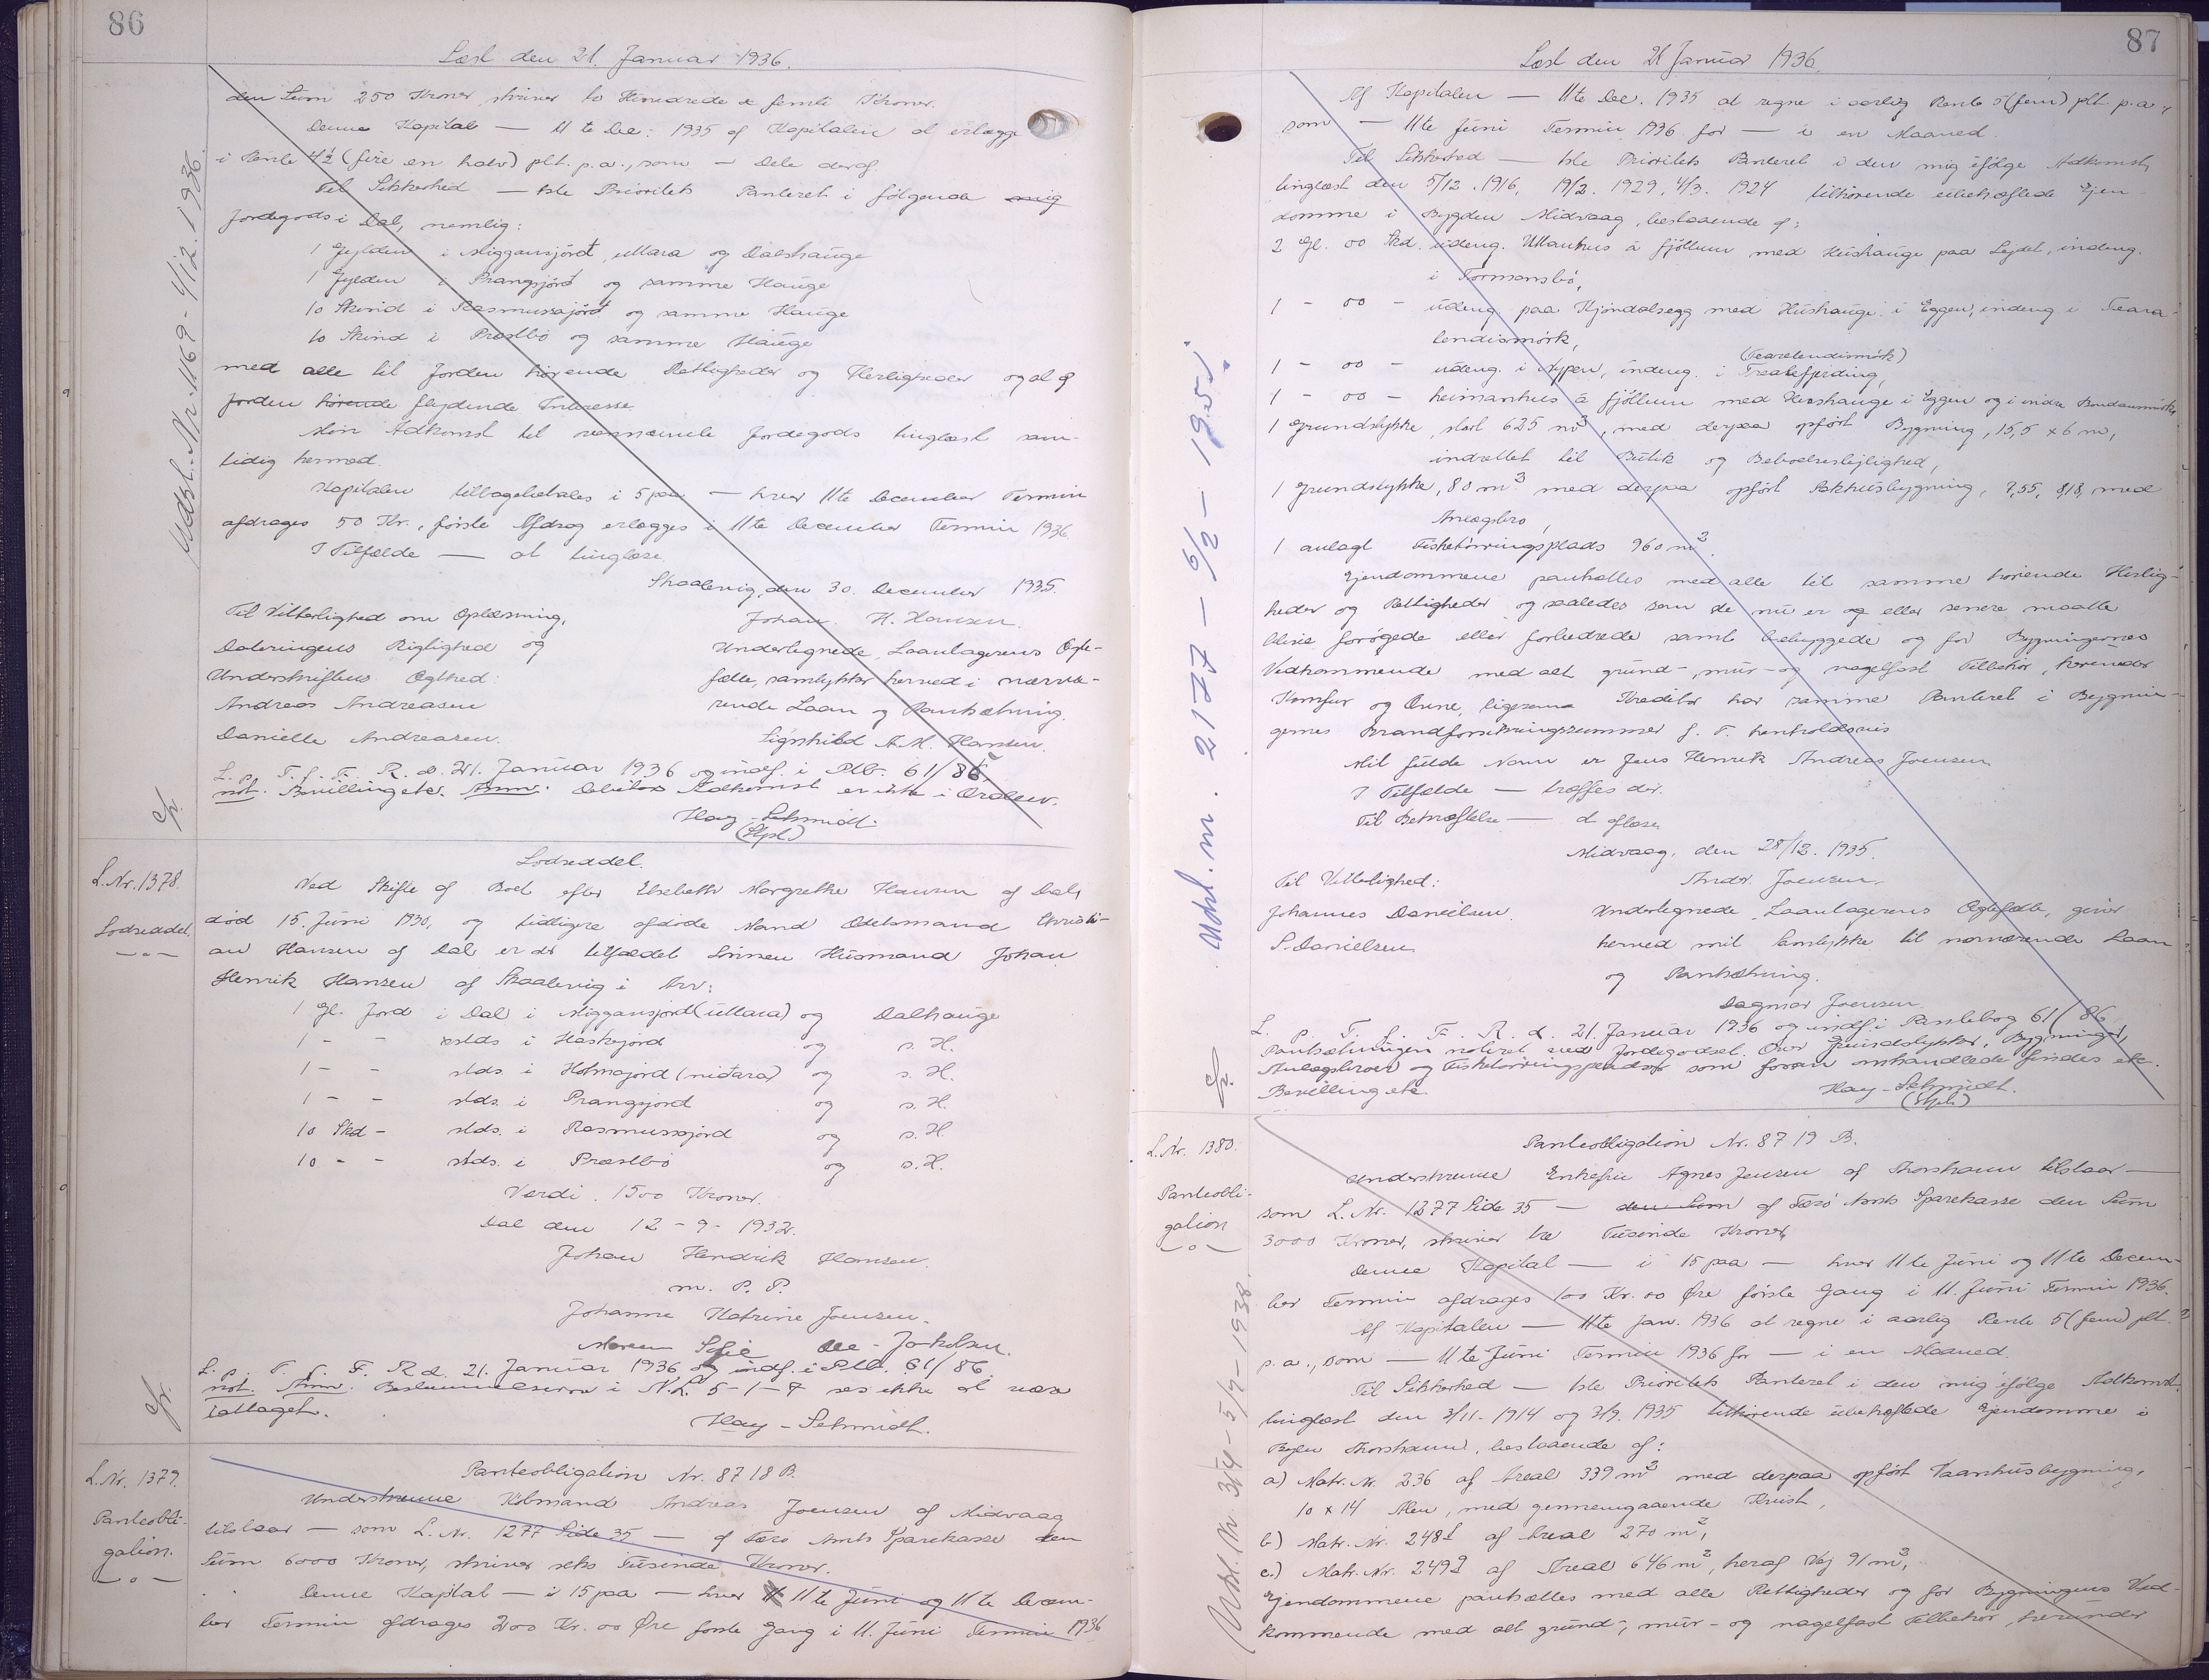 86
Læst den 21. Januar 1936.
den Sum 250 Kroner, skriver to Hundrede & femti Kroner.
Denne Kapital — 11te Dec. 1935 af Kapitalen at erlægge
i Rente 4½ (fire en halv) pct. p.a., som — Dele deraf
Til Sikkerhed — 1ste Prioritets Panteret i følgende mig
Jordegods i Dal, nemlig:
1 Gylden i Niggansjørd, uttara og Dalshauge
1 Gylden i Prangsjørd og samme Hauge
10 Skind i Rasmussajørd og samme Hauge
10 Skind i Præstbø og samme Hauge
med alle til Jorden hørende Rettigheder og Herligheder og al af
Jorden hørende flydende Interesse.
Min Adkomst til nævnte Jordegods tinglæst sam-
tidig hermed.
Kapitalen tilbagebetales i 5 paa — hver 11te December Termin
afdrages 50 Kr., første Afdrag erlægges i 11te December Termin 1936.
I Tilfælde — at tinglæse.
Skaalevig, den 30. December 1935.
Til Vitterlighed om Oplæsning, Johan H. Hansen.
Dateringens Rigtighed og Undertegnede, Laantagerens Ægte-
Underskriftens Ægthed: fælle, samtykker herved i nærvæ-
Andreas Andreasen rende Laan og Pantsætning.
Danielle Andreasen. Signhild A.M. Hansen.
L. p. T. f. F. R. d. 21. Januar 1936 og indf. i Ptb. 61/86,
not. Bevilling etc. Anm: Debitors Adkomst er ikke i Orden.
Hay-Schmidt.
(Kpst)
Udsl. Nr. 1169 - 1/12. 1936.
L.Nr. 1378.
Lodseddel.
Lodseddel.
Ved Skifte af Boet efter Elsebeth Margrethe Hansen af Dal,
død 15. Juni 1930, og tidligere afdøde Mand Odelsmand Christi-
an Hansen af Dal er der tilfaldet Sønnen Husmand Johan
Henrik Hansen af Skaalevig i Arv:
1 Gl. Jord i Dal i Niggansjørd (uttara) og Dalhauge
1 - - stds i Haskajord og s. H.
1 - - stds. i Holmajord (niðara) og s. H.
1 - - stds. i Prangsjord og s. H.
10 Skd - stds. i Rasmussajord og s. H.
10 - - stds. i Præstbø og s. H.
Værdi. 1500 Kroner.
Dal den 12 - 9 - 1932.
Johan Hendrik Hansen.
m. P. P.
Johanne Katrine Joensen.
Maren Sofie Jakobsen.
L. p. T. f. F. R. d. 21. Januar 1936 og indf. i Ptb. 61/86
not. Anm: Bestemmelserne i N.L. 5-1-7 ses ikke at være
iattaget.
Hay-Schmidt.
L.Nr. 1379.
Panteobli-
gation.
Panteobligation Nr. 8718 B.
Underskrevne Købmand Andreas Joensen af Midvaag
tilstaar — som L. Nr. 1277 Side 35 — af Færø Amts Sparekasse den
Sum 6000 Kroner, skriver seks Tusinde Kroner.
Denne Kapital — i 15 paa — hver 11te Juni og 11te Decem-
ber Termin afdrages 200 Kr. 00 Øre første Gang i 11. Juni Termin 1936
87
Læst den 21 Januar 1936.
Af Kapitalen — 11te Dec. 1935 at regne i aarlig Rente 5 (fem) pct. p.a.,
som — 11te Juni Termin 1936 for — i en Maaned.
Til Sikkerhed — 1ste Prioritets Panteret i den mig ifølge Adkomst,
tinglæst den 5/12. 1916, 19/2. 1929, 4/3. 1924 tilhørende ubehæftede Ejen-
domme i Bygden Midvaag, bestaaende af:
2 Gl. 00 Skd. udeng. Uttanhus á fjøllum med Hushauge paa Lejdet, indeng.
i Tormansbø,
1 - 00 - udeng. paa Kjøndalsegg med Hushauge i Eggen, indeng i Teara-
lendismørk,
(Tearalendismørk)
1 - 00 - udeng. i Nypen, indeng. i Trealefjerding,
1 - 00 - heimanhus á fjøllum med Hushauge i Eggen og i indre Bondansmørk,
1 Grundstykke, stort 625 m², med derpaa opført Bygning, 15,5 x 6 m,
indrettet til Butik og Beboelseslejlighed,
1 Grundstykke, 80 m² med derpaa opført Pakhusbygning, 7,55, 8,18, med
Anlægsbro,
1 anlagt Fisketørringsplads 960 m².
Ejendommene pantsættes med alle til samme hørende Herlig-
heder og Rettigheder og saaledes som de nu er og eller senere maatte
blive forøgede eller forbedrede samt bebyggede og for Bygningernes
Vedkommende med alt grund-, mur- og nagelfast Tilbehør, herunder
Komfur og Ovne, ligesom Kreditor har samme Panteret i Bygnin-
gernes Brandforsikringssummer f. T. henholdsvis
Mit fulde Navn er Jens Henrik Andreas Joensen
I Tilfælde — træffes der.
Til Bekræftelse — d aflæse
Midvaag, den 28/12. 1935.
Til Vitterlighed: Andr. Joensen.
Johannes Danielsen. Undertegnede, Laantagerens Ægtefælle, giver
S. Danielsen herved mit Samtykke til nærværende Laan
og Pantsætning.
Dagmar Joensen
L. p. T. f. F. R. d. 21. Januar 1936 og indf. i Pantebog 61/86
Pantsætningen noteret ved Jordegodset. Over Grundstykker, Bygninger,
Anlægsbroer og Fisketørringspladser som foran omhandlede findes etc.
Bevilling etc. Hay-Schmidt.
Udsl. nr. 2177 - 6/2 - 1951.
L. Nr. 1380.
Panteobli-
gation
Panteobligation Nr. 8719 B.
Underskrevne Enkefru Agnes Jensen af Thorshavn tilstaar —
som L. Nr. 1277 Side 35 — den Sum af Færø Amts Sparekasse den Sum
3000 Kroner, skriver tre Tusinde Kroner,
Denne Kapital — i 15 paa — hver 11te Juni og 11te Decem-
ber Termin afdrages 100 Kr. 00 Øre første Gang i 11. Juni Termin 1936.
Af Kapitalen — 11te Jan. 1936 at regne i aarlig Rente 5 (fem) pct.
p. a., som — 11te Juni Termin 1936 for — i en Maaned.
Til Sikkerhed — 1ste Prioritets Panteret i den mig ifølge Adkomst,
tinglæst den 3/11. 1914 og 3/9. 1935 tilhørende ubehæftede Ejendomme i
Byen Thorshavn, bestaaende af:
a) Matr. Nr. 236 af Areal 339 m² med derpaa opført Vaanhusbygning,
10 x 14 Alen, med gennemgaaende Kvist,
b) Matr. Nr. 248 f af Areal 270 m²,
c.) Matr. Nr. 249 g af Areal 646 m², heraf Vej 91 m²,
Ejendommene pantsættes med alle Rettigheder og for Bygningens Ved-
kommende med alt grund-, mur- og nagelfast Tilbehør, herunder
Udsl. Nr. 314 - 5/7 - 1938.